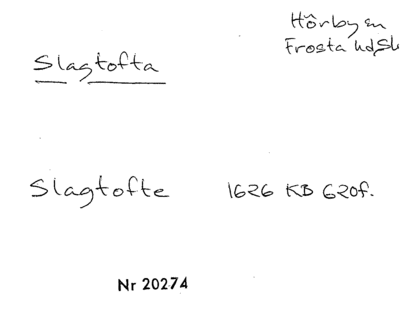 Hörby sn
Frosta hd, Sk
Slagtofta
Slagtofte 1626 KB 620f.
Nr 20274